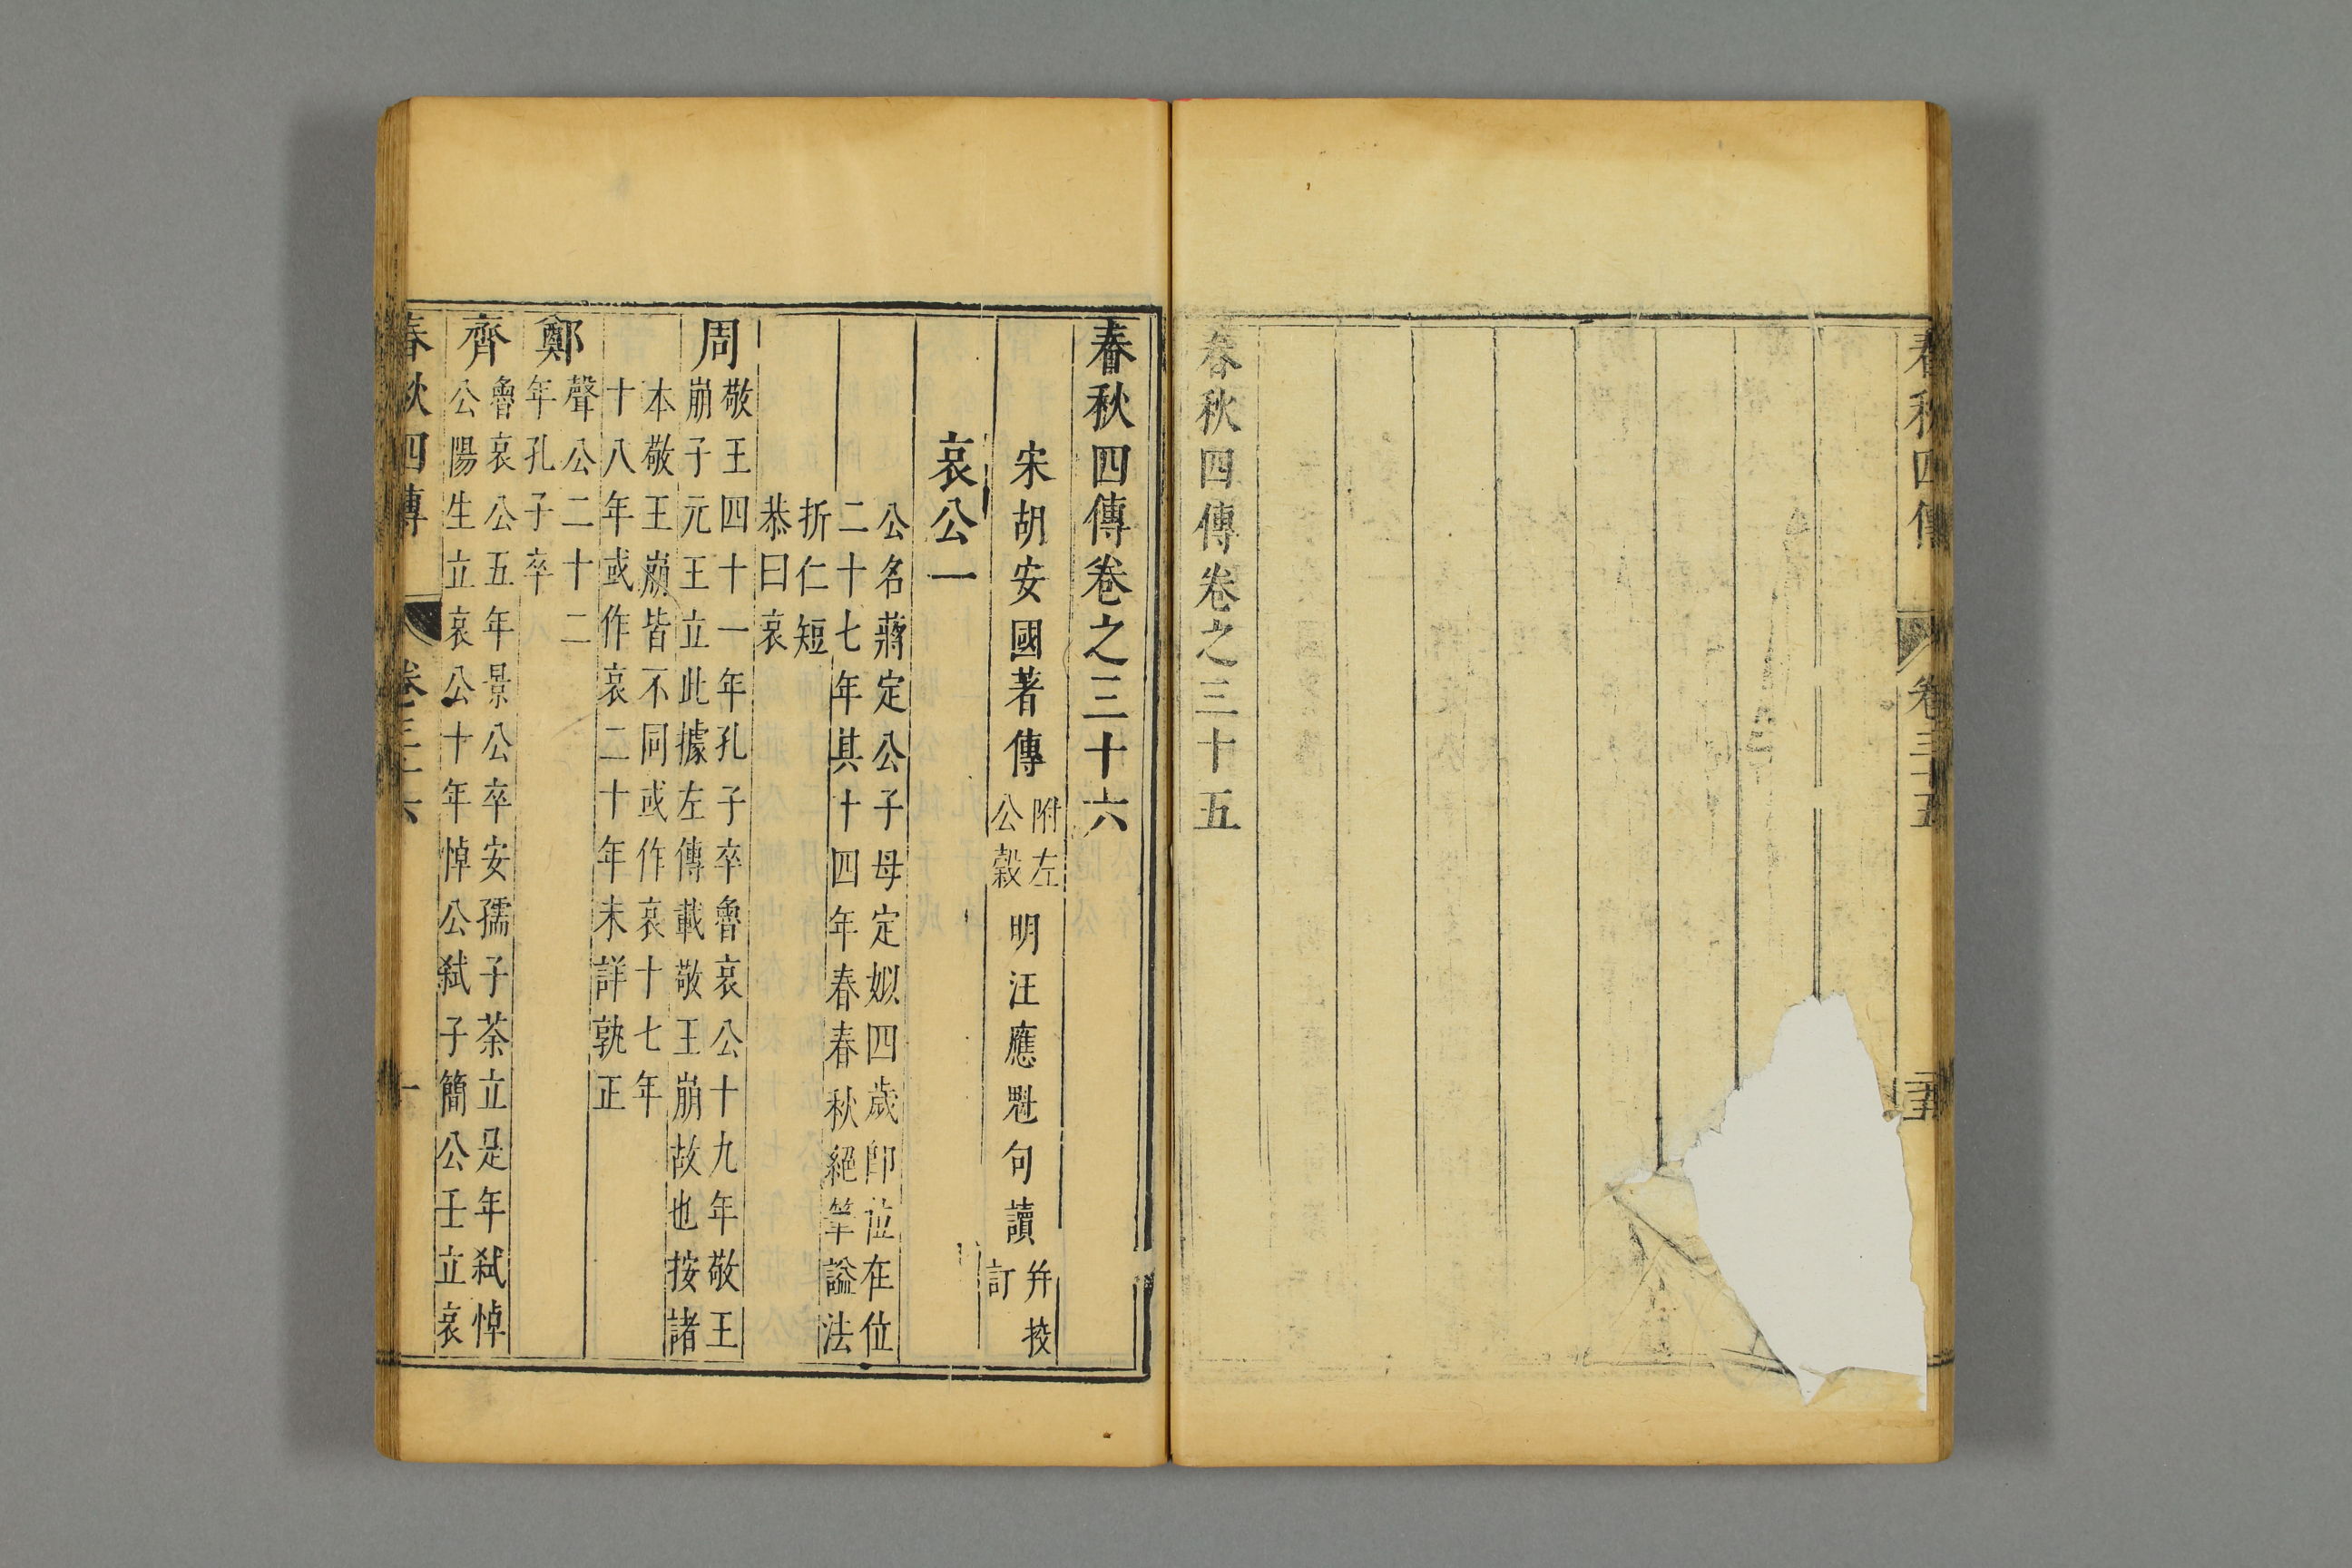 春秋四傳
卷三十五
春秋四傳卷之三十五
春秋四傳卷之三十六
宋胡安國著傳
附左
公穀
明汪應魁句讀
并按
訂
哀公一
公名蔣定公子母定姒四歲卽位在位
二十七年其十四年春春秋絕筆諡法
折仁短
恭曰哀
周
敬王四十一年孔子卒魯哀公十九年敬王
崩子元王立此據左傳載敬王崩故也按諸
本敬王崩皆不同或作哀十七年
十八年或作哀二十年未詳孰正
鄭
聲公二十二
年孔子卒
齊
魯哀公五年景公卒安孺子荼立是年弑悼
公陽生立哀公十年悼公弑子簡公壬立哀
春秋四傳
卷三十六
一